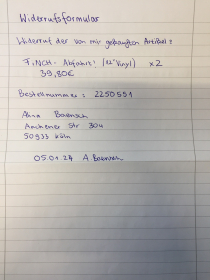 Widerrufsformular
Widerruf der von mir gekauften Artikel:
FiNCH - Abfahrt! (12" Vinyl) x2
39,80€
Bestellnummer: 2250551
Anna Baensch
Aachener Str 304
50933 Köln
05.01.24 A. Baensch